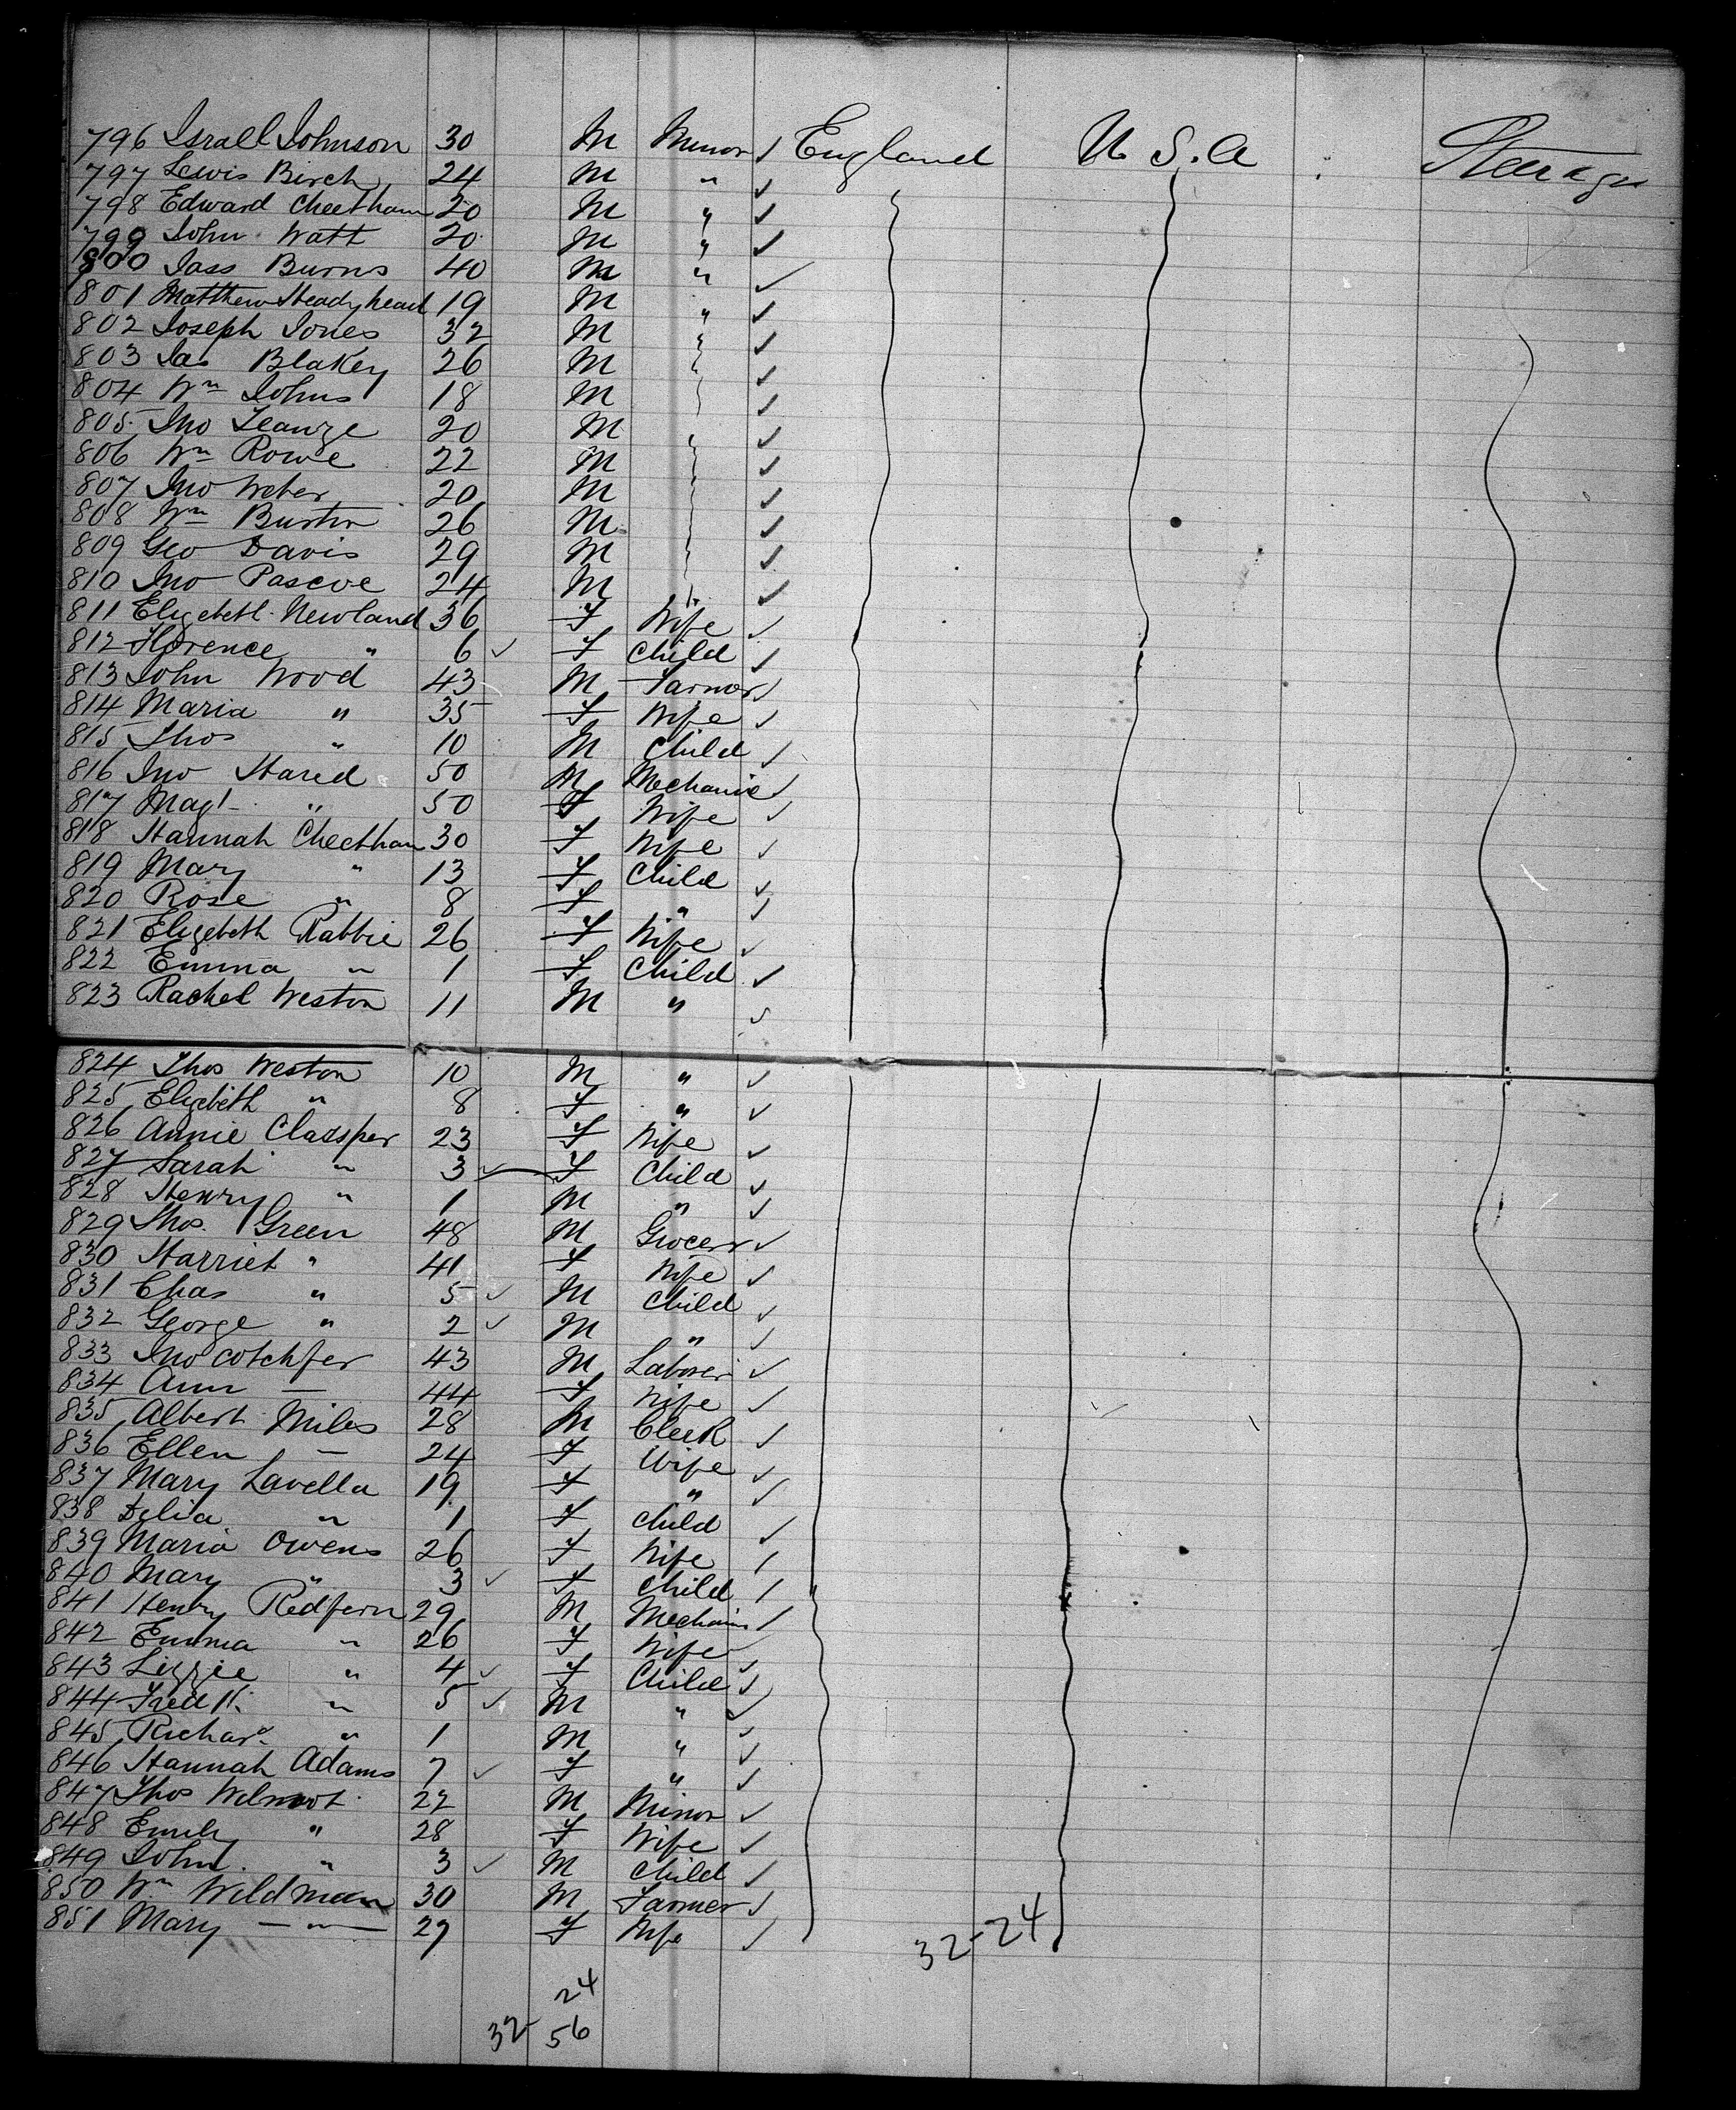 796 Israel Johnson 30 M Minor ✓ England U S. A Steerage
797 Lewis Birch 24 M " ✓
798 Edward Cheetham 20 M " ✓
799 John Watt 20 M " ✓
800 Jass Burns 40 M " ✓
801 Matthew Steadyhead 19 M " ✓
802 Joseph Jones 32 M ✓
803 Jas Blakey 26 M ✓
804 Wm Johns 18 M ✓
805 Jno 20 M ✓
806 Wm Rowe 22 M ✓
807 Jno Weber 20 M ✓
808 Wm Burton 26 M ✓
809 Geo Davis 29 M ✓
810 Jno Pascoe 24 M " ✓
811 Elizebeth Newland 36 F Wife ✓
812 Florence " 6 ✓ F Child ✓
813 John Wood 43 M Farmer ✓
814 Maria " 35 F Wife ✓
815 Thos " 10 M Child ✓
816 Jno Hared 50 M Mechanic ✓
817 Magt " 50 F Wife ✓
818 Hannah Cheetham 30 F Wife ✓
819 Mary " 13 F Child ✓
820 Rose " 8 F " ✓
821 Elizebeth Rabbie 26 F Wife ✓
822 Emma " 1 F Child ✓
823 Rachel Weston 11 M " ✓
824 Thos Weston 10 M " ✓
825 Elizebeth " 8 F " ✓
826 Annie Classper 23 F Wife ✓
827 Sarah " 3 ✓ F Child ✓
828 Henry " 1 M " ✓
829 Thos. Green 48 M Grocer ✓
830 Harriet " 41 F Wife ✓
831 Chas " 5 ✓ M Child ✓
832 George " 2 ✓ M " ✓
833 Jno Cotchfer 43 M Laborer ✓
834 Ann — 44 F Wife ✓
835 Albert Miles 28 M Clerk ✓
836 Ellen — 24 F Wife ✓
837 Mary Lavella 19 F " ✓
838 Delia " 1 F Child ✓
839 Maria Owens 26 F Wife /
840 Mary " 3 ✓ F Child /
841 Henry Redfern 29 M Mechanic /
842 Emma " 26 F Wife ✓
843 Lizzie " 4 ✓ F Child ✓
844 Fredk " 5 ✓ M " ✓
845 Richard " 1 M " ✓
846 Hannah Adams 7 ✓ F " ✓
847 Thos Wilmot 22 M Minor ✓
848 Emily " 28 F Wife ✓
849 John " 3 ✓ M Child ✓
850 Wm Wildman 30 M Farmer ✓
851 Mary —"— 27 F Wife ✓
32-24
24
32- 56